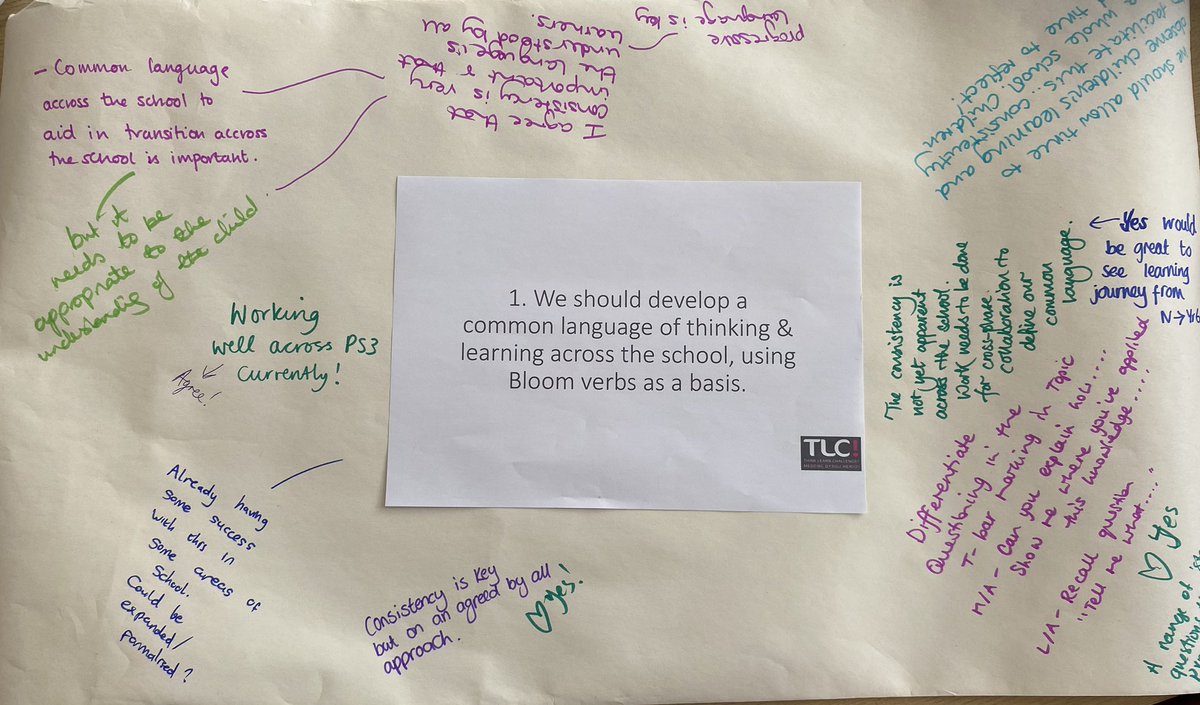 - Common language
accross the school to
aid in transition accross
the school is important.
but it
needs to be
appropriate to the
understanding of the child
I agree that
consistency is very
important & that
the language is
understood by all
learners.
progressive
language is key
we should allow time to
observe children's learning and
facilitate this consistently
whole school. Children
time to reflect!
Working
well across PS3
currently!
Agree!
1. We should develop a
common language of thinking &
learning across the school, using
Bloom verbs as a basis.
TLC!
THINK LEARN CHALLENGE!
"The consistency is
not yet apparent
across the school.
Work needs to be done
for cross-phase
collaboration to
define our
common
language.
← Yes would
be great to
see learning
journey from
N → Yr6
Already having
some success
with this in
some areas of
School.
Could be
expanded/
formalised?
Consistency is key
but on an agreed by all
approach.
♡ Yes!
Differentiate
Questioning in the
T-bar marking in Topic
M/A - Can you explain how....
Show me where you've applied
this knowledge....
L/A - Recall question
"Tell me what...."
♡ Yes
A range of
question